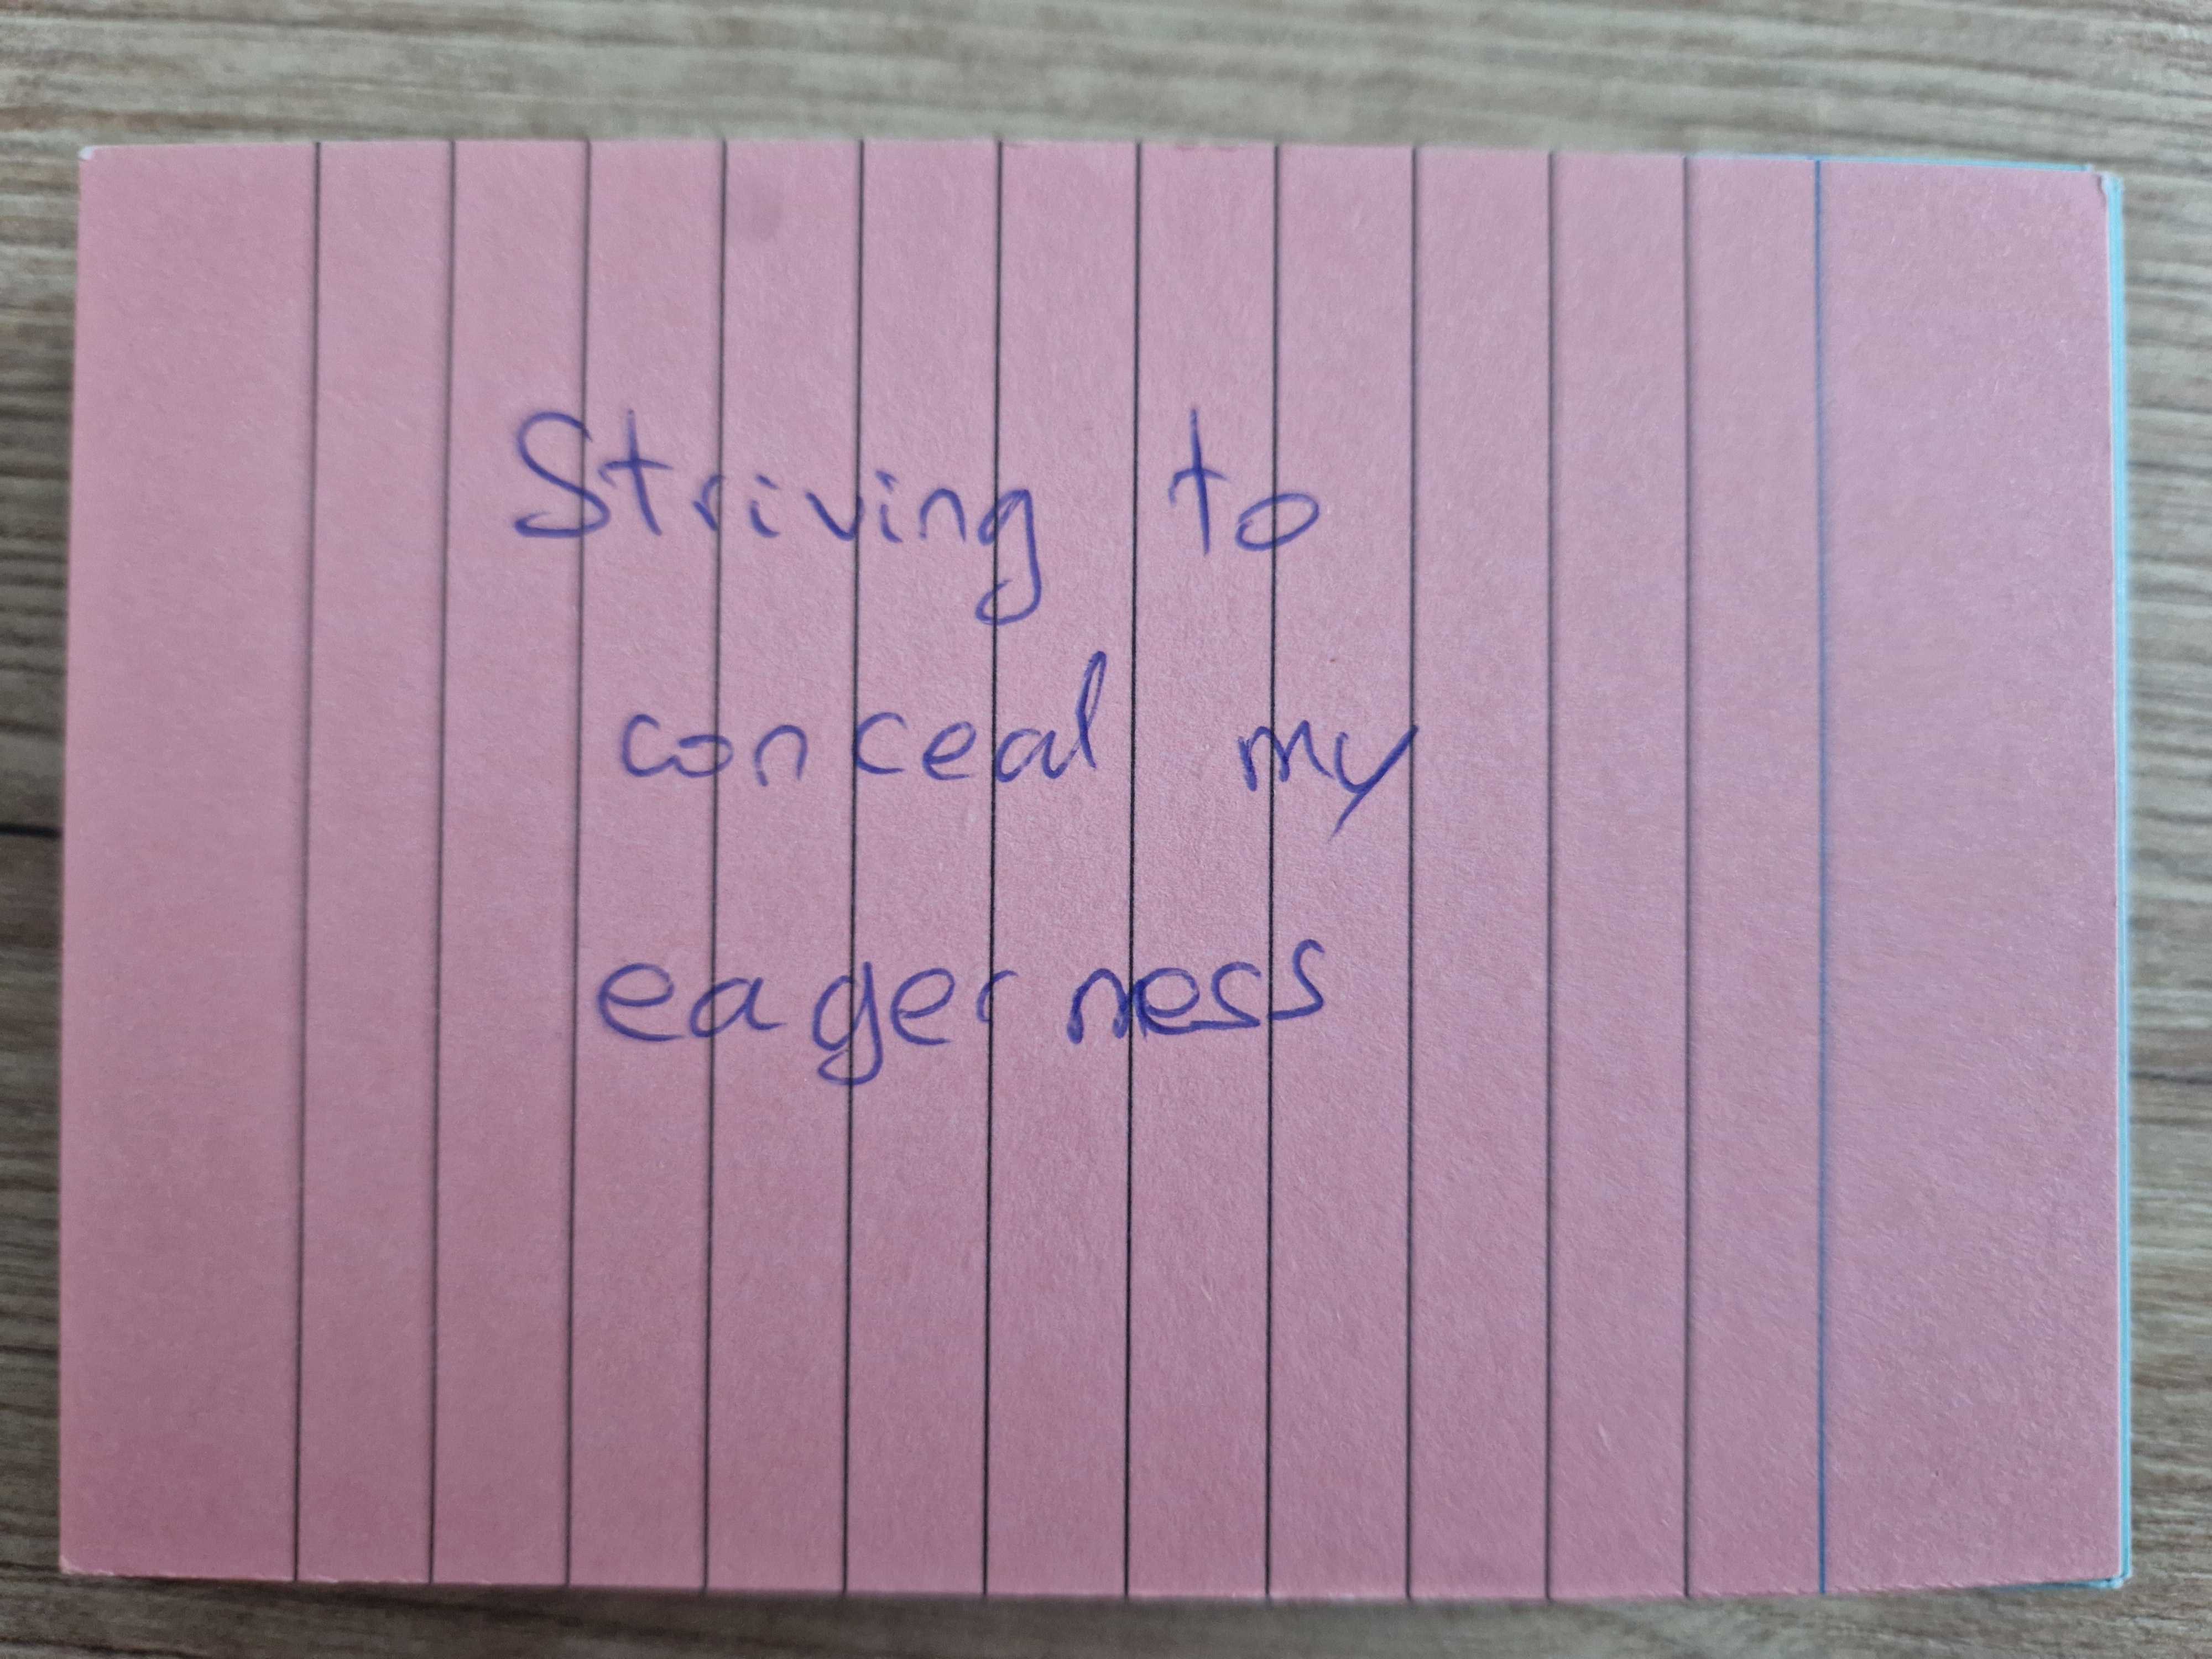 Striving to
conceal my
eagerness